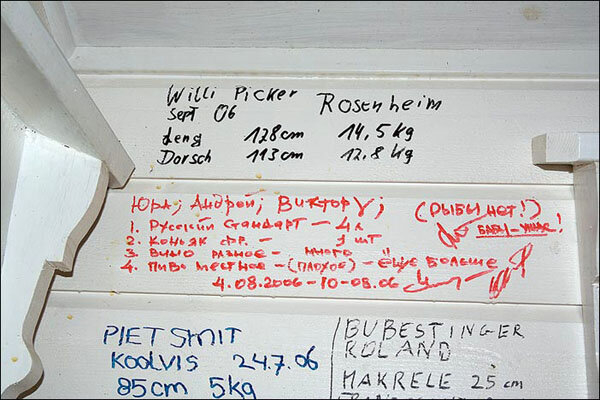 Willi Picker Rosenheim
Sept 06
Leng 128cm 14,5kg
Dorsch 113cm 12,8kg
Юра; Андрей; Виктор У; (рыбы нет!)
1. Русский Стандарт – 4л бабы – ужас!
2. Коньяк фр. – 3 шт
3 Вино разное – много "
4. Пиво местное – (плохое) – еще больше
4.08.2006 – 10-08.06
PIET SMIT
KOOLVIS 24.7.06
85cm 5kg
BUBESTINGER
ROLAND
MAKRELE 25 cm